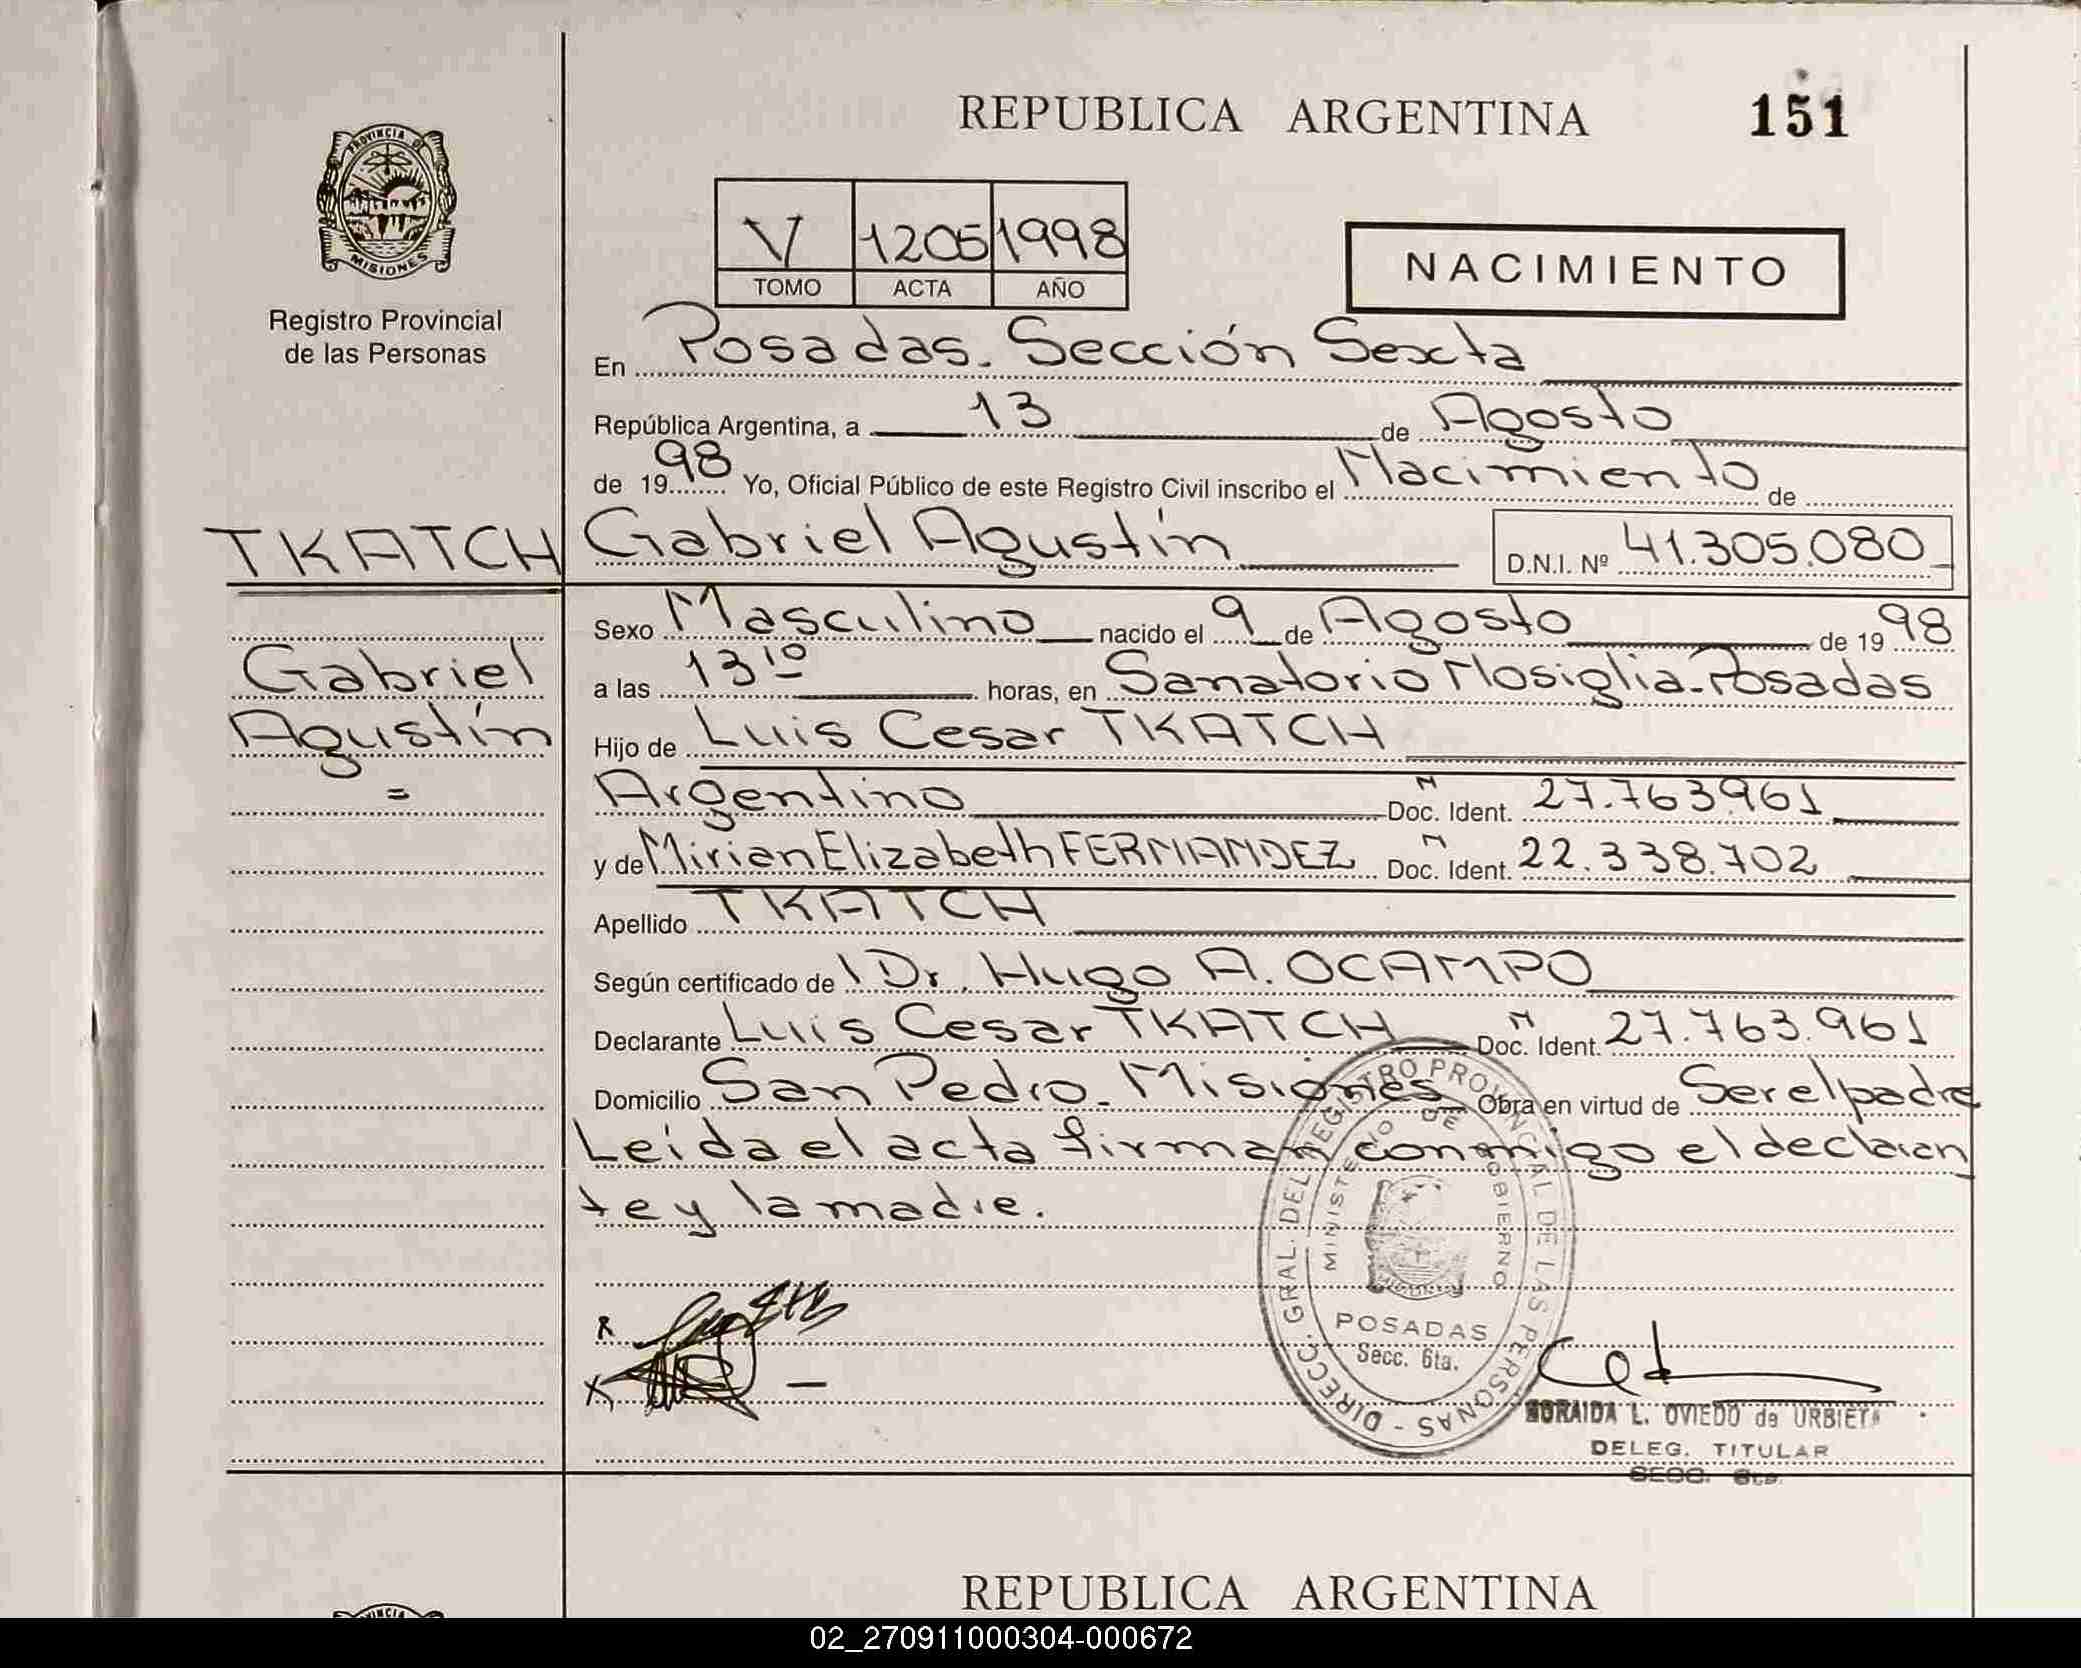 REPUBLICA ARGENTINA
151
PROVINCIA DE
MISIONES
Registro Provincial
de las Personas
V 1205 1998
TOMO ACTA AÑO
NACIMIENTO
En Posadas. Sección Sexta
República Argentina, a 13 de Agosto
de 1998 Yo, Oficial Público de este Registro Civil inscribo el Nacimiento de
TKATCH Gabriel Agustín D.N.I. Nº 41.305.080
Sexo Masculino nacido el 9 de Agosto de 1998
Gabriel
a las 13¹⁰ horas, en Sanatorio Nosiglia-Posadas
Agustín
Hijo de Luis Cesar TKATCH
=
Argentino N Doc. Ident. 27.763.961
y de Mirian Elizabeth FERNANDEZ N Doc. Ident. 22.338.702
Apellido TKATCH
Según certificado de Dr. Hugo A. OCAMPO
Declarante Luis Cesar TKATCH N Doc. Ident. 27.763.961
Domicilio San Pedro. Misiones Obra en virtud de Ser el padre
Leída el acta firman conmigo el declaran
te y la madre.
DIRECC. GRAL. DEL REGISTRO PROVINCIAL DE LAS PERSONAS -
MINISTERIO DE GOBIERNO
POSADAS
Secc. 6ta.
X
X
ZORAIDA L. OVIEDO de URBIETA
DELEG. TITULAR
SECC. 6ta.
REPUBLICA ARGENTINA
02_270911000304-000672